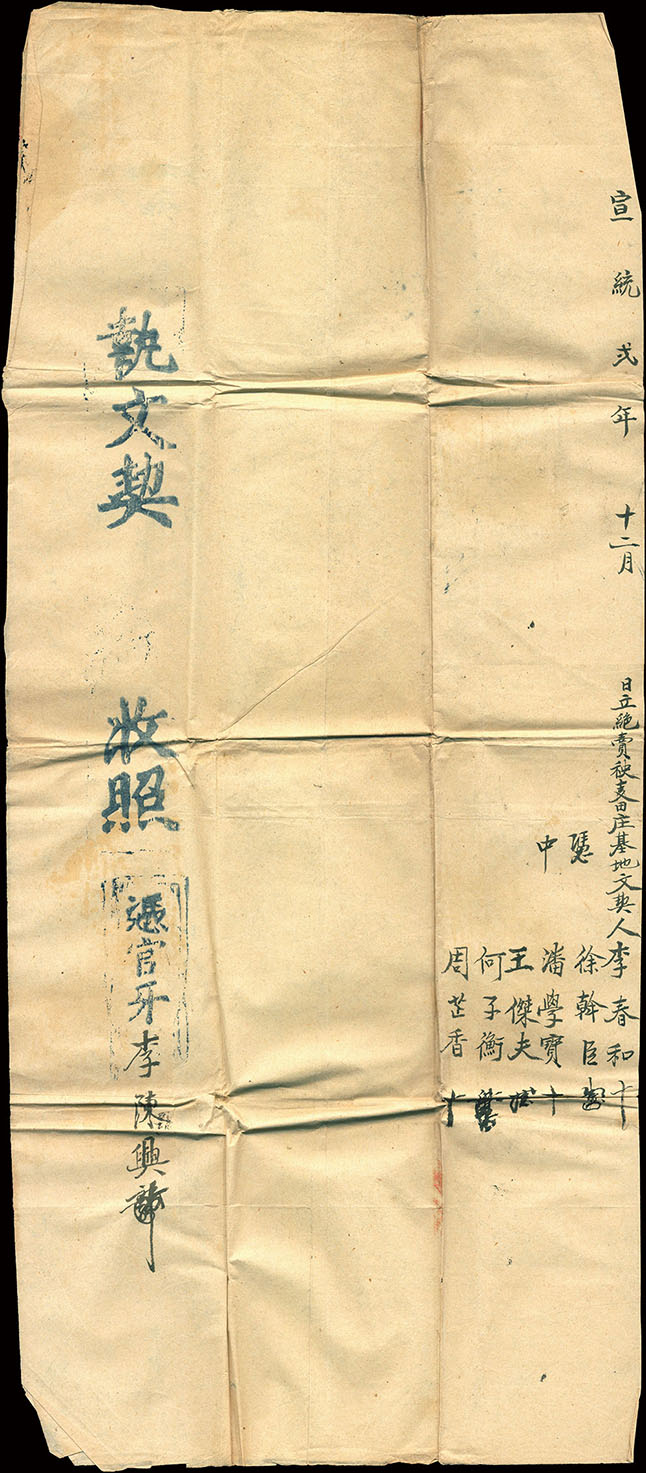 宣統弍年 十二月 日立絕賣秧麦田庄基地文契人李春和十
憑 徐幹臣
中 潘學寶十
王傑夫
何子衡
周芷香十
執文契 收照
憑官牙李 陳興